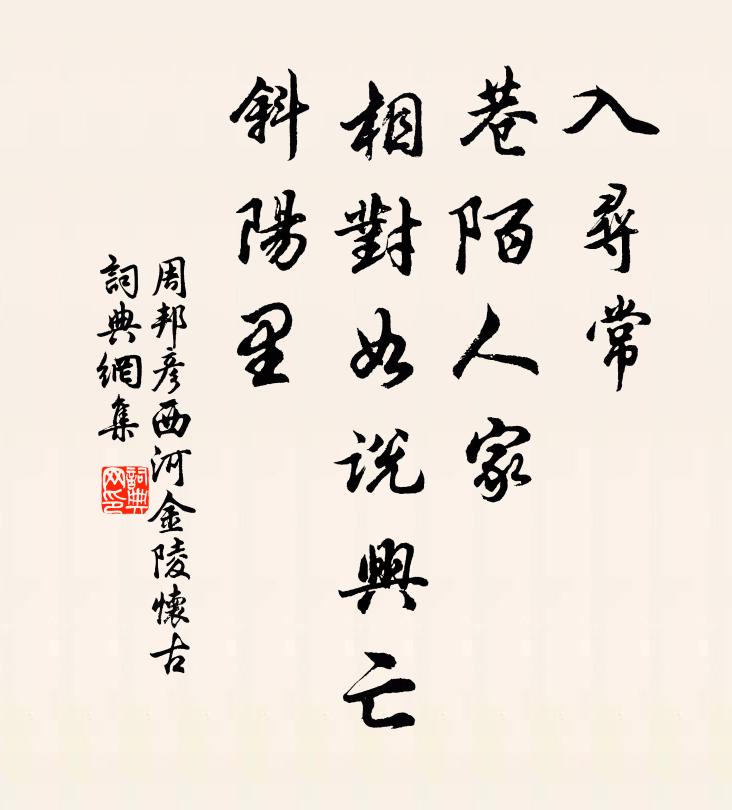 入尋常
巷陌人家
相對如説興亡
斜陽里
周邦彦西河金陵懷古
詞典網集
詞典
网印